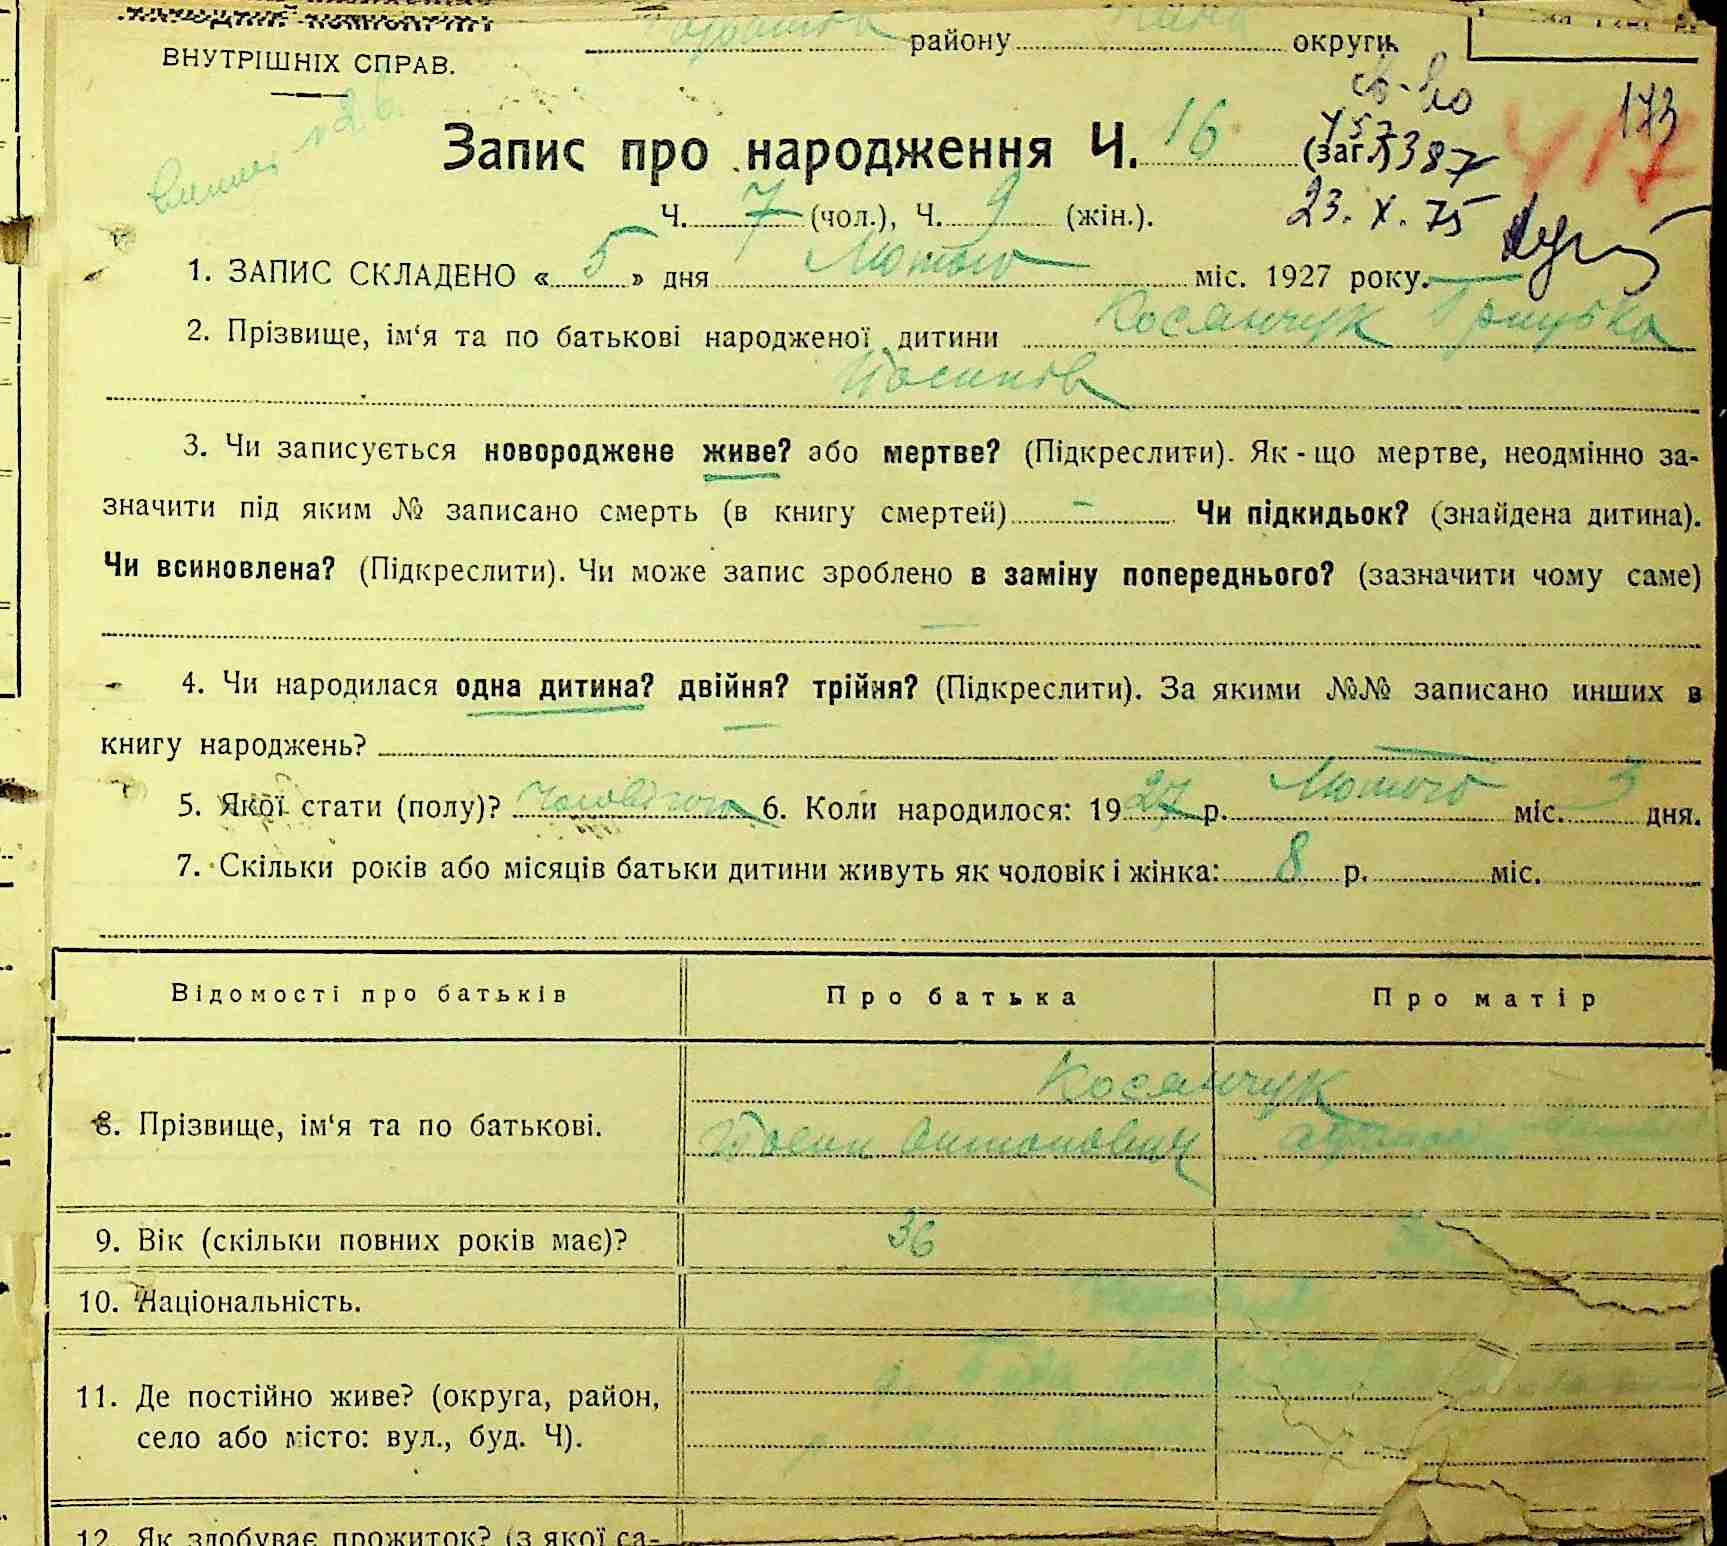 ВНУТРІШНІХ СПРАВ.
району округи
Запис про народження Ч. 16 (заг.)
173
417
Ч. 7 (чол.), Ч. 9 (жін.).
23. X. 75
1. ЗАПИС СКЛАДЕНО « 5 » дня Лютого міс. 1927 року.
2. Прізвище, ім‘я та по батькові народженої дитини Косянчук Грицько
Йосипов
3. Чи записується новороджене живе? або мертве? (Підкреслити). Як-що мертве, неодмінно за-
значити під яким № записано смерть (в книгу смертей) – Чи підкидьок? (знайдена дитина).
Чи всиновлена? (Підкреслити). Чи може запис зроблено в заміну попереднього? (зазначити чому саме)
4. Чи народилася одна дитина? двійня? трійня? (Підкреслити). За якими №№ записано инших в
книгу народжень?
5. Якої стати (полу)? 6. Коли народилося: 1927 р. Лютого міс. 3 дня.
7. Скільки років або місяців батьки дитини живуть як чоловік і жінка: 8 р. міс.
Відомості про батьків Про батька Про матір
Косянчук
8. Прізвище, ім‘я та по батькові. Йосип Антонович
9. Вік (скільки повних років має)? 36
10. Національність.
11. Де постійно живе? (округа, район,
село або місто: вул., буд. Ч).
12. Як здобуває прожиток? (з якої са-